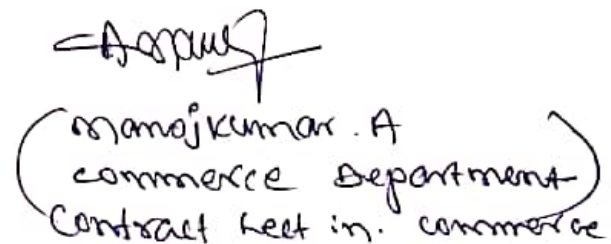 manojkumar. A
commerce Department
Contract Lect in. commerce